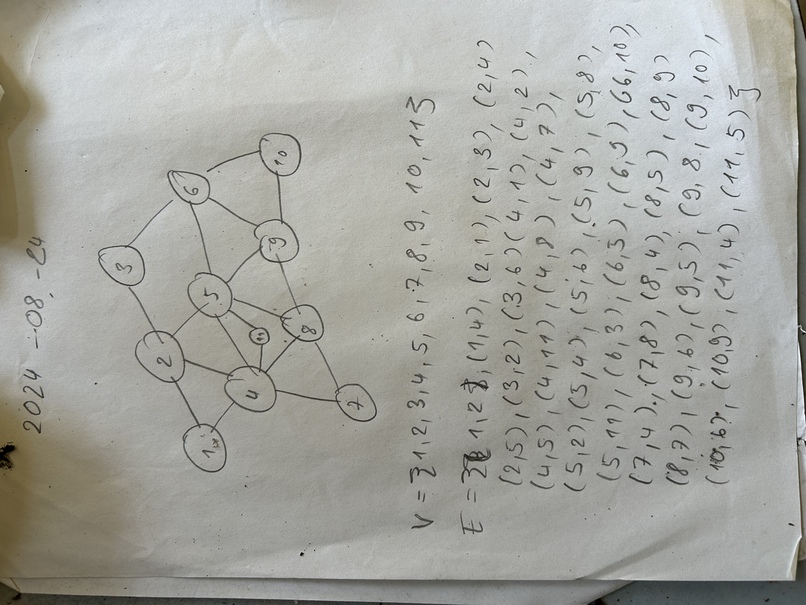 2024-08.-24
1
2
3
4
5
6
7
8
9
10
11
V = {1,2,3,4,5,6,7,8,9,10,11}
E = {(1,2),(1,4),(2,1),(2,3),(2,4)
(2,5),(3,2),(3,6)(4,1),(4,2),
(4,5),(4,11),(4,8),(4,7),
(5,2)(5,4),(5,6),(5,9),(5,8),
(5,11),(6,3),(6,5),(6,9),(6,10),
(7,4),(7,8),(8,4),(8,5),(8,9)
(8,7),(9,6),(9,5),(9,8,(9,10),
(10,6),(10,9),(11,4),(11,5)}